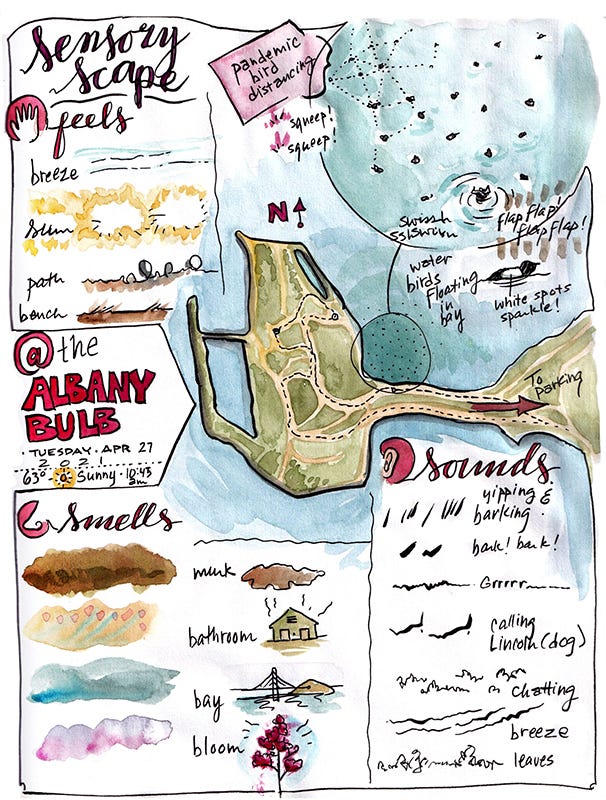 Sensory
Scape
feels
breeze
Sun
path
bench
pandemic
bird
distancing
squeep!
squeep!
swissh
sslswirn
flap flap!
flap flap!
water
birds
floating
in
bay
white spots
sparkle!
N
@ the
ALBANY
BULB
· TUESDAY · APR 27
2 0 2 1
63° Sunny · 10:43
am
To
parking
Smells
munk
bathroom
bay
bloom
Sounds
yipping &
barking
bark! bark!
Grrrrr
calling
Lincoln (dog)
chatting
breeze
leaves